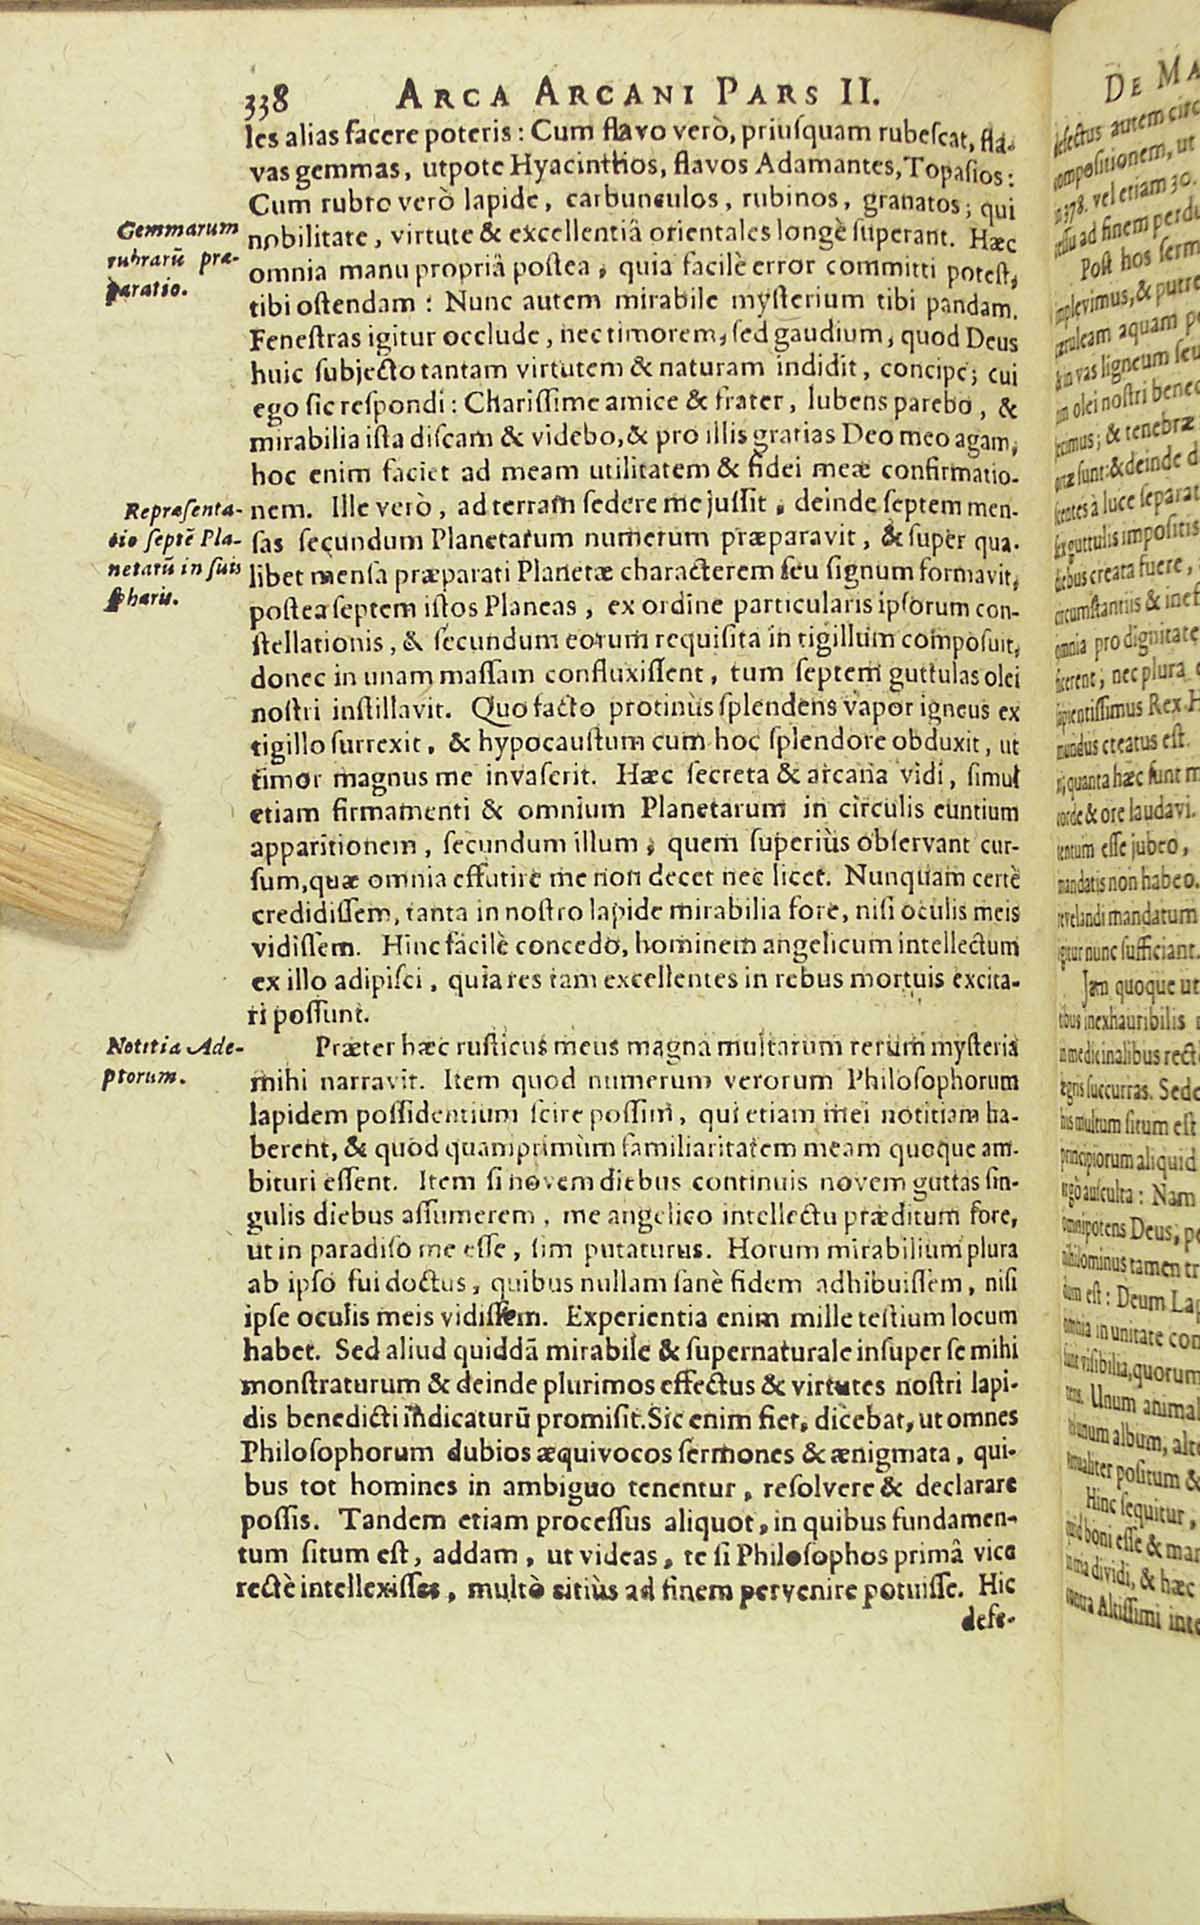 338 ARCA ARCANI PARS II.
les alias facere poteris: Cum flavo verò, priusquam rubescat, fla-
vas gemmas, utpote Hyacinthios, flavos Adamantes, Topasios:
Cum rubro verò lapide, carbunculos, rubinos, granatos; qui
nobilitate, virtute & excellentiâ orientales longè superant. Hæc
omnia manu propriâ postea, quia facilè error committi potest,
tibi ostendam: Nunc autem mirabile mysterium tibi pandam.
Fenestras igitur occlude, nec timorem, sed gaudium, quod Deus
huic subjecto tantam virtutem & naturam indidit, concipe; cui
ego sic respondi: Charissime amice & frater, lubens parebo, &
mirabilia ista discam & videbo, & pro illis gratias Deo meo agam,
hoc enim faciet ad meam utilitatem & fidei meæ confirmatio-
nem. Ille verò, ad terram sedere me jussit, deinde septem men-
sas secundum Planetarum numerum præparavit, & super qua-
libet mensa præparati Planetæ characterem seu signum formavit,
postea septem istos Planeas, ex ordine particularis ipsorum con-
stellationis, & secundum eorum requisita in tigillum composuit,
donec in unam massam confluxissent, tum septem guttulas olei
nostri instillavit. Quo facto protinùs splendens vapor igneus ex
tigillo surrexit, & hypocaustum cum hoc splendore obduxit, ut
timor magnus me invaserit. Hæc secreta & arcana vidi, simul
etiam firmamenti & omnium Planetarum in circulis euntium
apparitionem, secundum illum, quem superiùs observant cur-
sum, quæ omnia effutire me non decet nec licet. Nunquam certè
credidissem, tanta in nostro lapide mirabilia fore, nisi oculis meis
vidissem. Hinc facilè concedo, hominem angelicum intellectum
ex illo adipisci, quia res tam excellentes in rebus mortuis excita-
ri possunt.
Præter hæc rusticus meus magna multarum rerum mysteria
mihi narravit. Item quod numerum verorum Philosophorum
lapidem possidentium scire possim, qui etiam mei notitiam ha-
berent, & quod quamprimùm familiaritatem meam quoque am-
bituri essent. Item si novem diebus continuis novem guttas sin-
gulis diebus assumerem, me angelico intellectu præditum fore,
ut in paradiso me esse, sim putaturus. Horum mirabilium plura
ab ipso sui doctus, quibus nullam sanè fidem adhibuissem, nisi
ipse oculis meis vidissem. Experientia enim mille testium locum
habet. Sed aliud quiddã mirabile & supernaturale insuper se mihi
monstraturum & deinde plurimos effectus & virtutes nostri lapi-
dis benedicti indicaturũ promisit. Sic enim fiet, dicebat, ut omnes
Philosophorum dubios æquivocos sermones & ænigmata, qui-
bus tot homines in ambiguo tenentur, resolvere & declarare
possis. Tandem etiam processus aliquot, in quibus fundamen-
tum situm est, addam, ut videas, te si Philosophos primâ vice
rectè intellexisses, multò citiùs ad finem pervenire potuisse. Hic
defe-
Gemmarum
rubrarũ præ-
paratio.
Repræsenta-
tio septẽ Pla-
netarũ in suis
sphæris.
Notitia Ade-
ptorum.
DE MA
defectus autem circ
compositionem, ut
in 378. vel etiam 30.
ressu ad finem perdu
Post hos serm
implevimus, & putre
cæruleam aquam pe
& in vas ligneum seu
olei nostri bened
& tenebræ
sunt: & deinde d
a luce separat
guttulis impositis
debus creata fuere,
circumstantiis & inef
omnia pro dignitate
ficerent, nec plura
sapientissimus Rex H
mundus creatus est.
quanta hæc sunt m
corde & ore laudavi.
tentum esse jubeo,
mandatis non habeo.
revelandi mandatum
igitur nunc sufficiant.
Jam quoque ut
tibus inexhauribilis
in medicinalibus recte
ægris succurras. Sede
his multum situm est
principiorum aliquid
ergò ausculta: Nam
omnipotens Deus, pe
nihilominus tamen tr
dum est: Deum Lap
omnia in unitate con
sunt visibilia, quorum
Unum animal
unum album, alte
positum &
Hinc sequitur,
quid boni esse & mar
dividi, & hæc
contra Altissimi inte